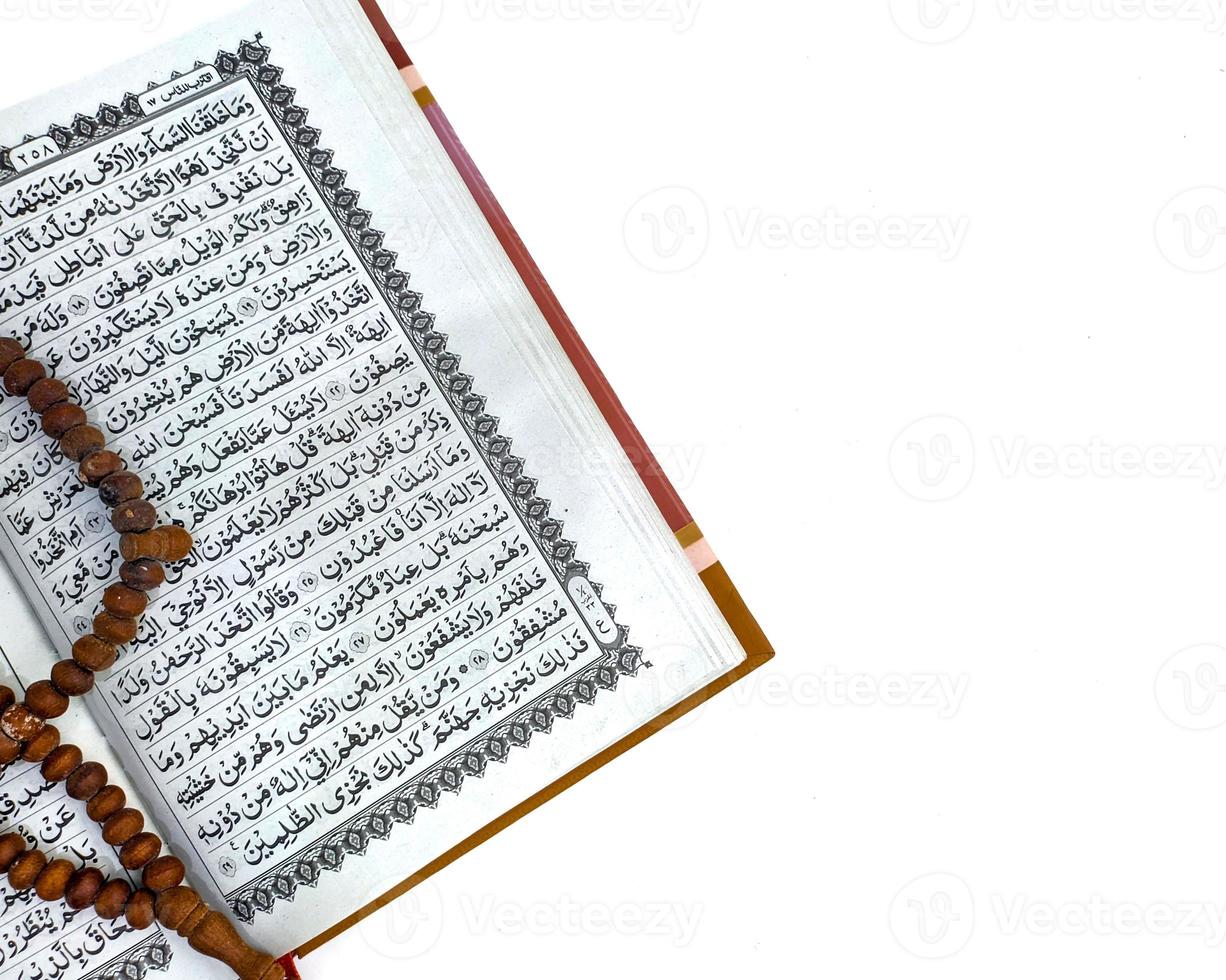 اقترب للنّاس ١٧
٢٥٨
وَمَا خَلَقْنَا السَّمَآءَ وَالْاَرْضَ وَمَا بَيْنَهُمَا
اَنْ نَّتَّخِذَ لَهْوًا لَّاتَّخَذْنٰهُ مِنْ لَّدُنَّآ اِنْ
بَلْ نَقْذِفُ بِالْحَقِّ عَلَى الْبَاطِلِ فَيَدْمَ
زَاهِقٌ ۗ وَلَكُمُ الْوَيْلُ مِمَّا تَصِفُوْنَ ۝١٨ وَلَهٗ مَنْ
وَالْاَرْضِ ۗ وَمَنْ عِنْدَهٗ لَا يَسْتَكْبِرُوْنَ عَنْ
يَسْتَحْسِرُوْنَ ۚ ۝١٩ يُسَبِّحُوْنَ الَّيْلَ وَالنَّهَارَ
اتَّخَذُوْٓا اٰلِهَةً مِّنَ الْاَرْضِ هُمْ يُنْشِرُوْنَ كَانَ فِيْهِمَآ
اٰلِهَةٌ اِلَّا اللّٰهُ لَفَسَدَتَا ۚ فَسُبْحٰنَ اللّٰهِ الْعَرْشِ عَمَّا
يَصِفُوْنَ ۝٢٢ لَا يُسْـَٔلُ عَمَّا يَفْعَلُ وَهُمْ ۝٢٣ اَمِ اتَّخَذُوْا
مِنْ دُوْنِهٖٓ اٰلِهَةً ۗ قُلْ هَاتُوْا بُرْهَانَكُمْ مَنْ مَّعِيَ وَ
ذِكْرُ مَنْ قَبْلِيْ ۗ بَلْ اَكْثَرُهُمْ لَا يَعْلَمُوْنَ الْحَقَّ ۝٢٤
وَمَآ اَرْسَلْنَا مِنْ قَبْلِكَ مِنْ رَّسُوْلٍ اِلَّا نُوْحِيْٓ اِلَيْهِ
لَآ اِلٰهَ اِلَّآ اَنَا۠ فَاعْبُدُوْنِ ۝٢٥ وَقَالُوا اتَّخَذَ الرَّحْمٰنُ وَلَدًا
سُبْحٰنَهٗ ۗ بَلْ عِبَادٌ مُّكْرَمُوْنَ ۝٢٦ لَا يَسْبِقُوْنَهٗ بِالْقَوْلِ
وَهُمْ بِاَمْرِهٖ يَعْمَلُوْنَ ۝٢٧ يَعْلَمُ مَا بَيْنَ اَيْدِيْهِمْ وَمَا
خَلْفَهُمْ وَلَا يَشْفَعُوْنَ اِلَّا لِمَنِ ارْتَضٰى وَهُمْ مِّنْ خَشْيَتِهٖ
مُشْفِقُوْنَ ۝٢٨ وَمَنْ يَّقُلْ مِنْهُمْ اِنِّيْٓ اِلٰهٌ مِّنْ دُوْنِهٖ
فَذٰلِكَ نَجْزِيْهِ جَهَنَّمَ ۗ كَذٰلِكَ نَجْزِى الظّٰلِمِيْنَ ۝٢٩
عَنْ وُّ
بَلْ
يُنْظَرُوْنَ
Vecteezy